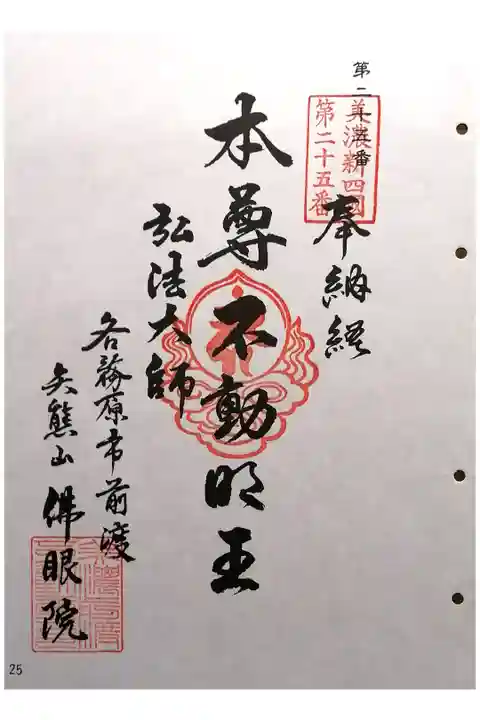 第二十五番
美濃新四国
第二十五番
奉納経
本尊不動明王
弘法大師
各務原市前渡
矢熊山 佛眼院
25